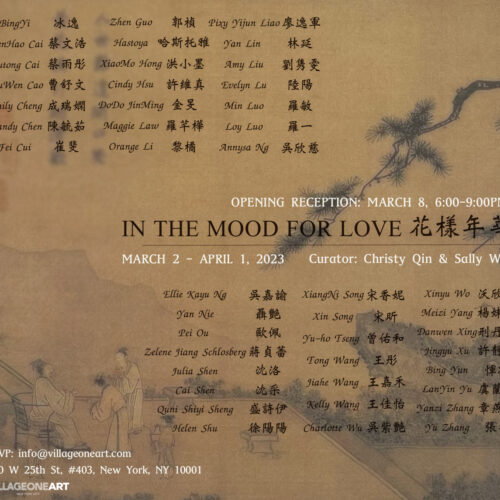 BingYi 冰逸 Zhen Guo 郭楨 Pixy Yijun Liao 廖逸軍
enHao Cai 蔡文浩 Hastoya 哈斯托雅 Yan Lin 林延
utong Cai 蔡雨彤 XiaoMo Hong 洪小墨 Amy Liu 劉雋雯
uWen Cao 曹舒文 Cindy Hsu 許維真 Evelyn Lu 陸陽
ily Cheng 成瑞嫻 DoDo JinMing 金旻 Min Luo 羅敏
andy Chen 陳毓茹 Maggie Law 羅芊樺 Loy Luo 羅一
Fei Cui 崔斐 Orange Li 黎橘 Annysa Ng 吳欣慈
OPENING RECEPTION: MARCH 8, 6:00-9:00PM
IN THE MOOD FOR LOVE 花樣年華
MARCH 2 - APRIL 1, 2023 Curator: Christy Qin & Sally W
Ellie Kayu Ng 吳嘉諭 XiangNi Song 宋香妮 Xinyu Wo 沃欣
Yan Nie 聶艷 Xin Song 宋昕 Meizi Yang 楊妹
Pei Ou 歐佩 Yu-ho Tseng 曾佑和 Danwen Xing 刑丹
Zelene Jiang Schlosberg 蔣貞蕾 Tong Wang 王彤 Jingyu Xu 許靜
Julia Shen 沈洛 Jiahe Wang 王嘉禾 Bing Yun 惲
Cai Shen 沈采 Kelly Wang 王佳怡 LanYin Yu 虞蘭
Quni Shiyi Sheng 盛詩伊 Charlotte Wu 吳紫艷 Yanzi Zhang 章燕
Helen Shu 徐陽陽 Yu Zhang 張
VP: info@villageoneart.com
0 W 25th St, #403, New York, NY 10001
ILLAGEONEART